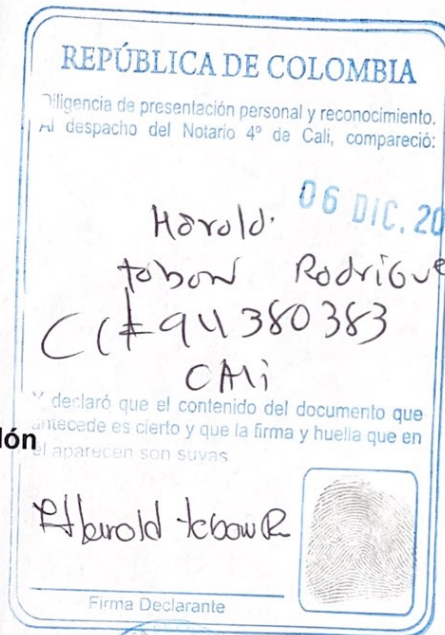 REPÚBLICA DE COLOMBIA
Diligencia de presentación personal y reconocimiento.
Al despacho del Notario 4º de Cali, compareció:
06 DIC. 20
Harold.
tobon Rodrigue
CC# 94380383
CALi
Y declaró que el contenido del documento que
antecede es cierto y que la firma y huella que en
él aparecen son suyas
lón
Harold tobon R
Firma Declarante